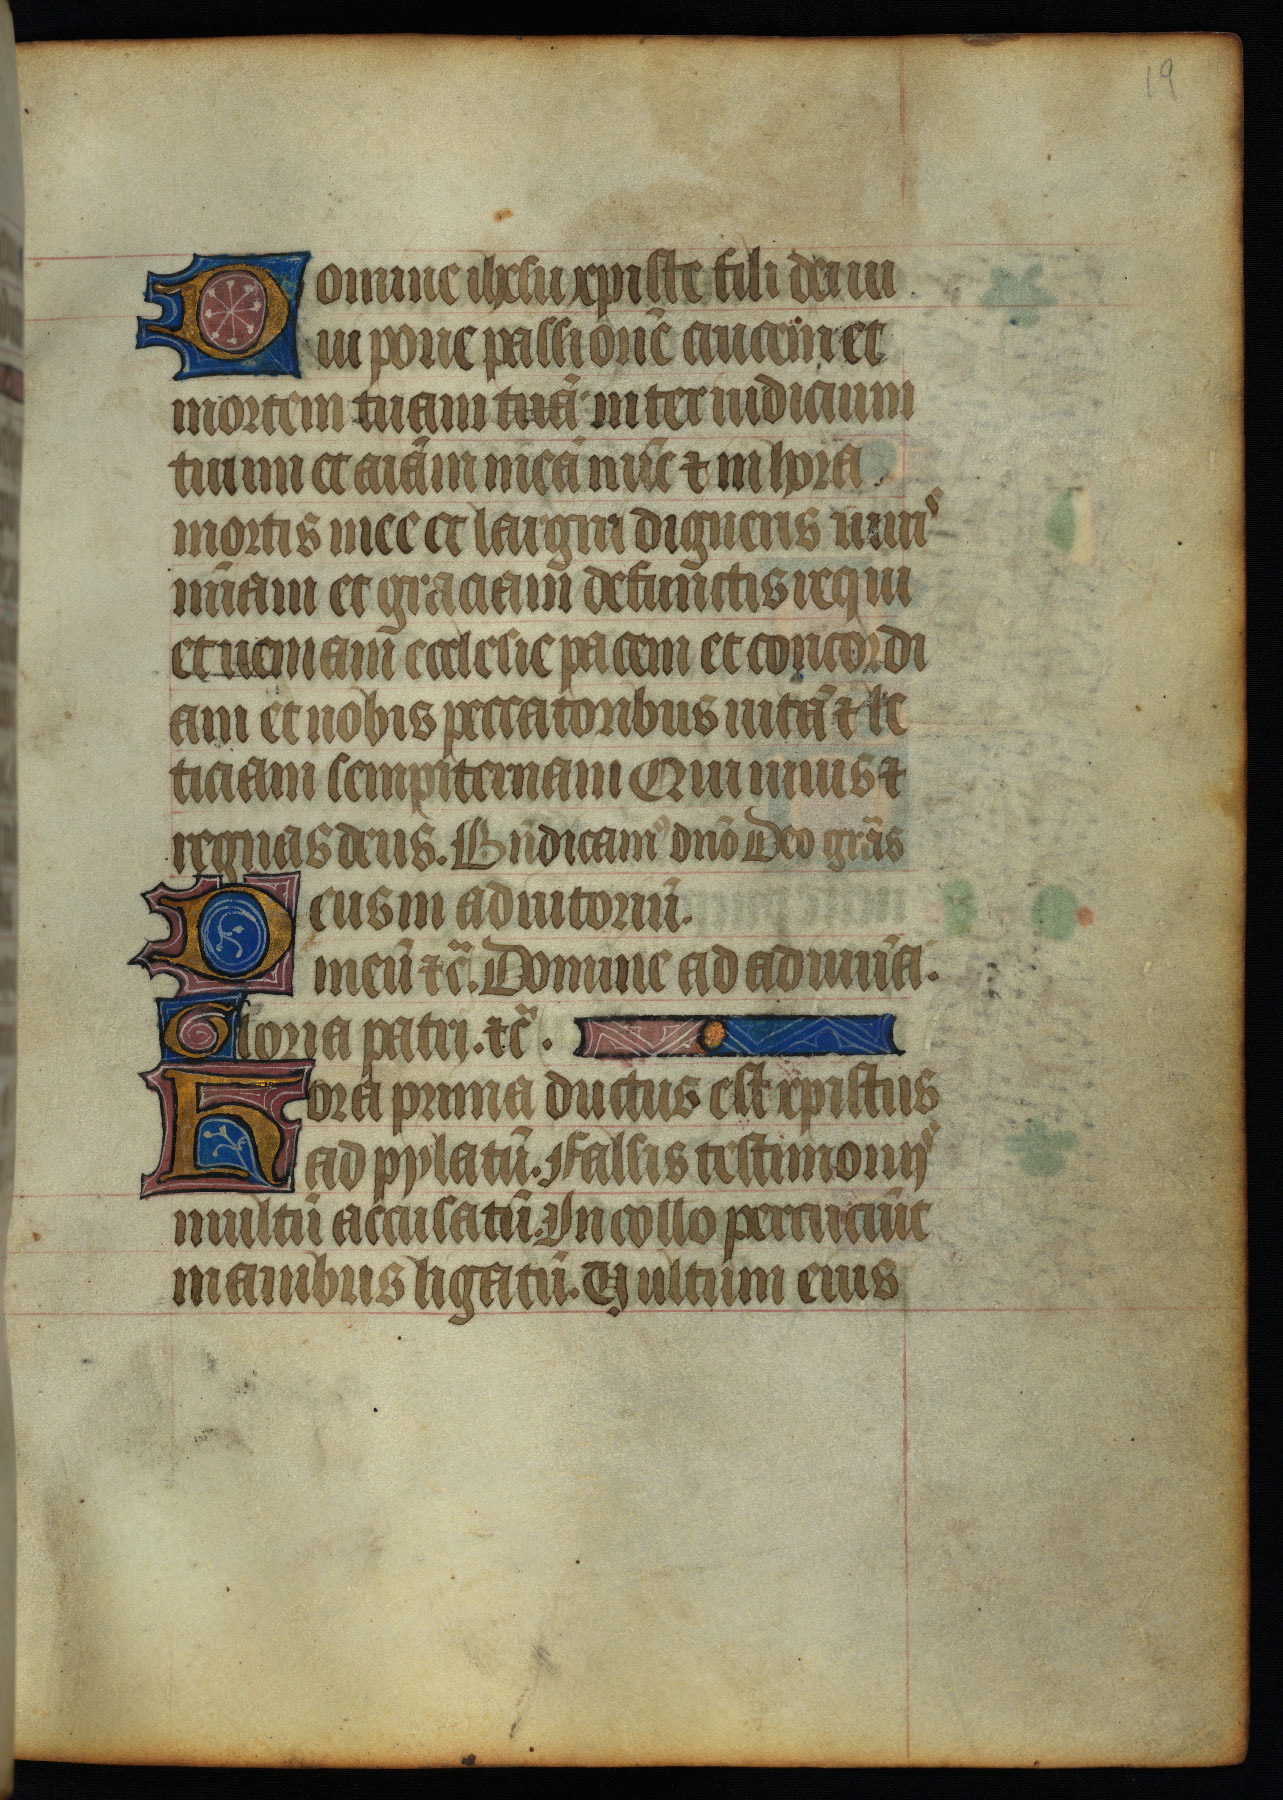 19
Domine ihesu xpiste fili dei ui
ui pone passionē crucem et
mortem tuam tuā inter iudicium
tuum et aīam meā nūc ⁊ in hora
mortis mee et largiri digneris uiuis
mīam et graciam defunctis requi
et ueniam ecclesie pacem et concordi
am et nobis peccatoribus uitā ⁊ le
ticiam sempiternam Qui uiuis ⁊
regnas deus. Bn̄dicam⁹ dnō Deo grās
Deus in adiutoriū.
meū ⁊c̄. Domine ad adiuuā.
Gloria patri. ⁊c̄.
Hora prima ductus est xpistus
ad pylatū. Falsis testimoniis
multū accusatū. In collo percuciūt
manibus ligatū. Vultum eius